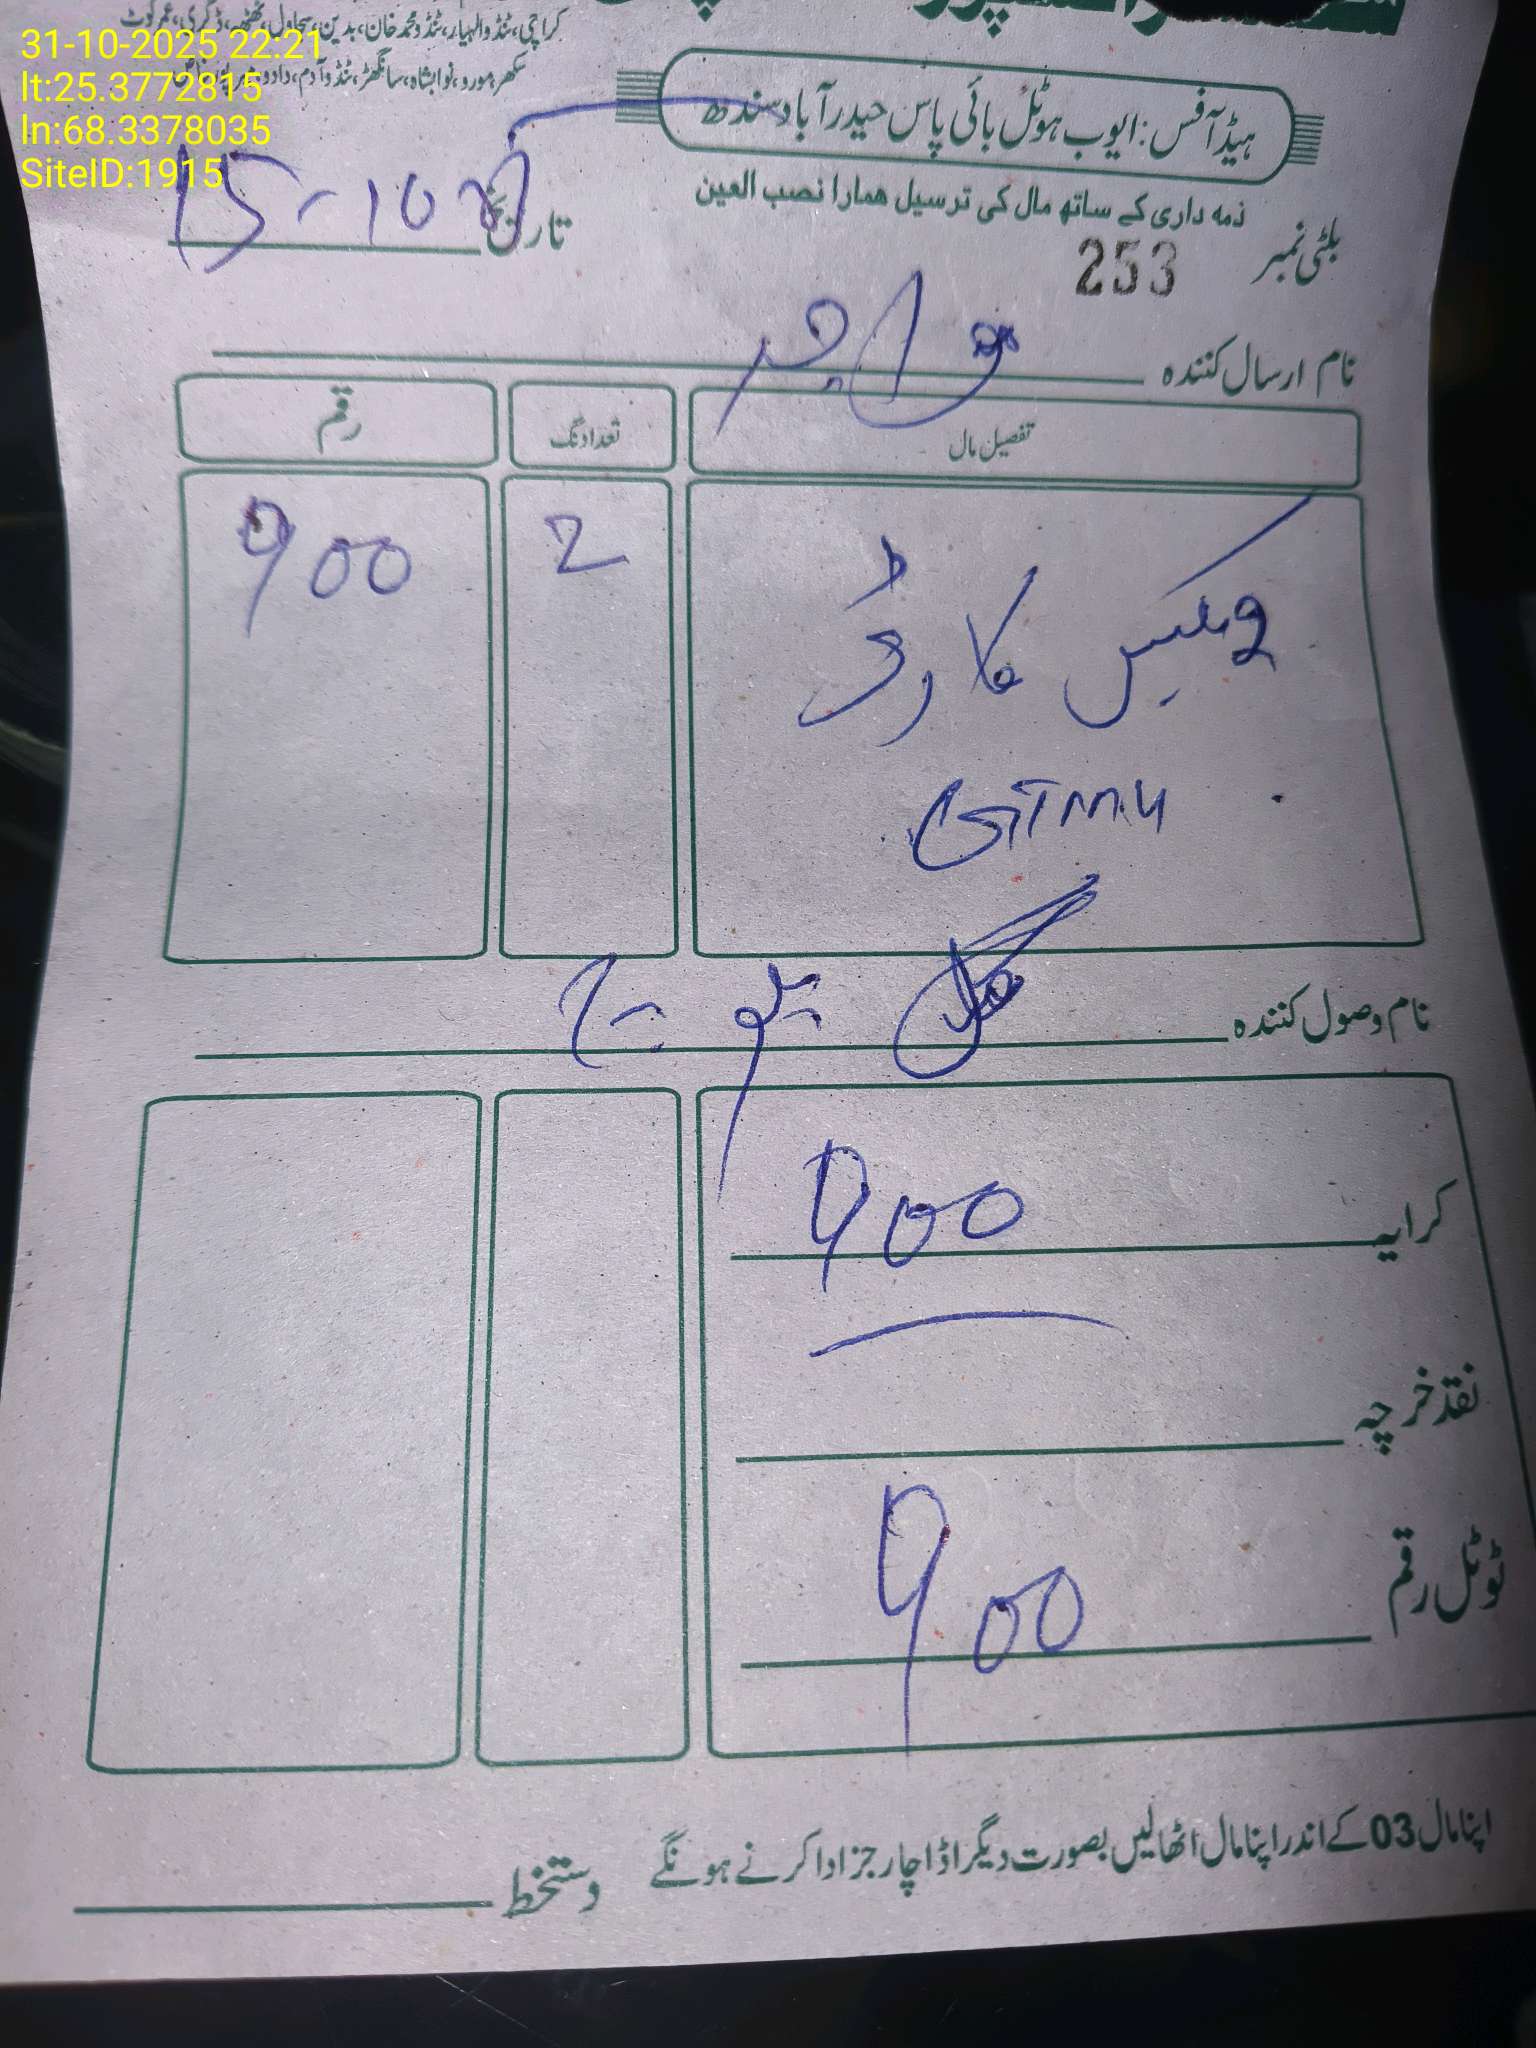 31-10-2025 22:21
lt:25.3772815
ln:68.3378035
SiteID:1915
کراچی، ٹنڈوالہیار، ٹنڈومحمدخان، بدین، سجاول، ٹھٹھہ، ڈگری، عمرکوٹ
سکھر، مورو، نوابشاہ، سانگھڑ، ٹنڈوآدم، دادو،
ہیڈ آفس: ایوب ہوٹل بائی پاس حیدرآباد سندھ
ذمه داری کے ساتھ مال کی ترسیل ھمارا نصب العین
بلٹی نمبر 253
تاریخ 15-10
نام ارسال کنندہ
تفصیل مال تعداد نگ رقم
کارڈ 2 900
نام وصول کنندہ گل
کرایہ 900
نقد خرچہ
ٹوٹل رقم 900
اپنا مال 03 کے اندر اپنا مال اٹھالیں بصورت دیگر اڈا چارجز ادا کرنے ہونگے
دستخط